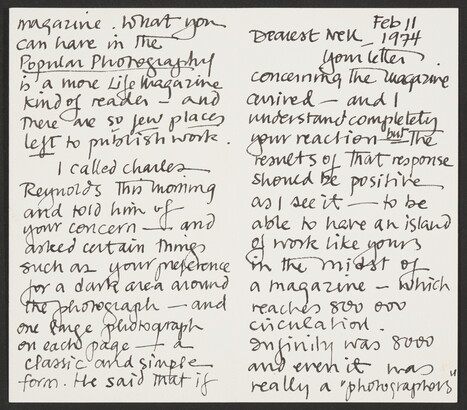 Feb 11
Dearest Nell — 1974
Your letter
concerning the magazine
arrived — and I
understand completely
your reaction but the
results of that response
should be positive
as I see it — to be
able to have an island
of work like yours
in the midst of
a magazine — which
reaches 800 000
circulation.
Infinity was 8000
and even it was
really a "photographers"
magazine. What you
can have in the
Popular Photography
is a more Life Magazine
kind of reader — and
there are so few places
left to publish work.
I called Charles
Reynolds this morning
and told him of
your concern — and
asked certain things
such as your preference
for a dark area around
the photograph — and
one large photograph
on each page — a
classic and simple
form. He said that if